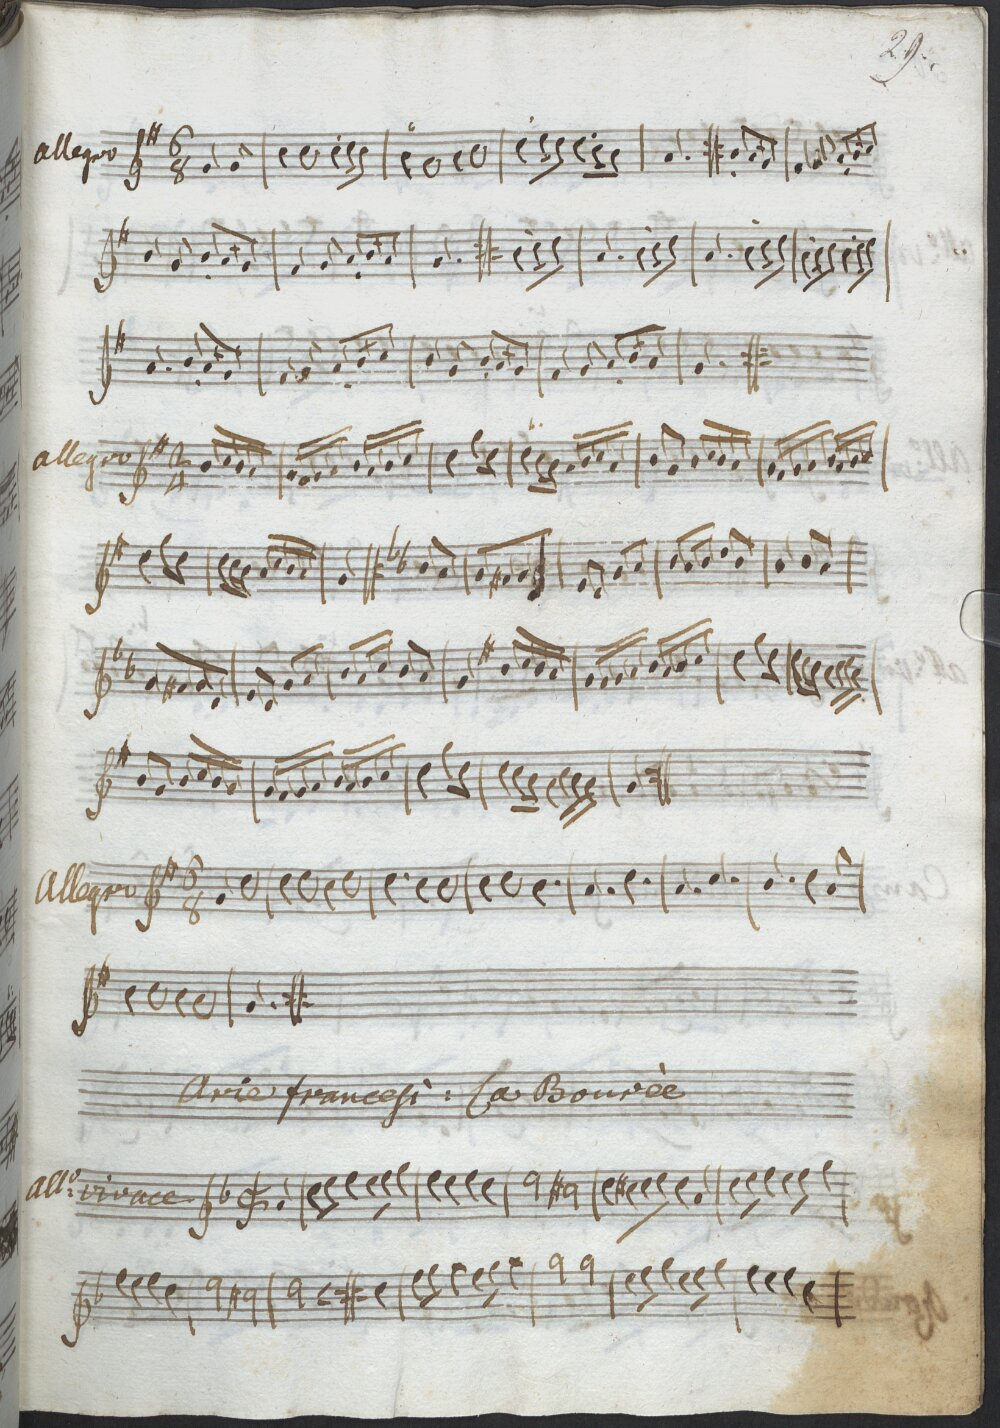 29.
allegro
6
8
allegro
2
4
Allegro
6
8
Arie francesi: La Bourèe
all.o vivace